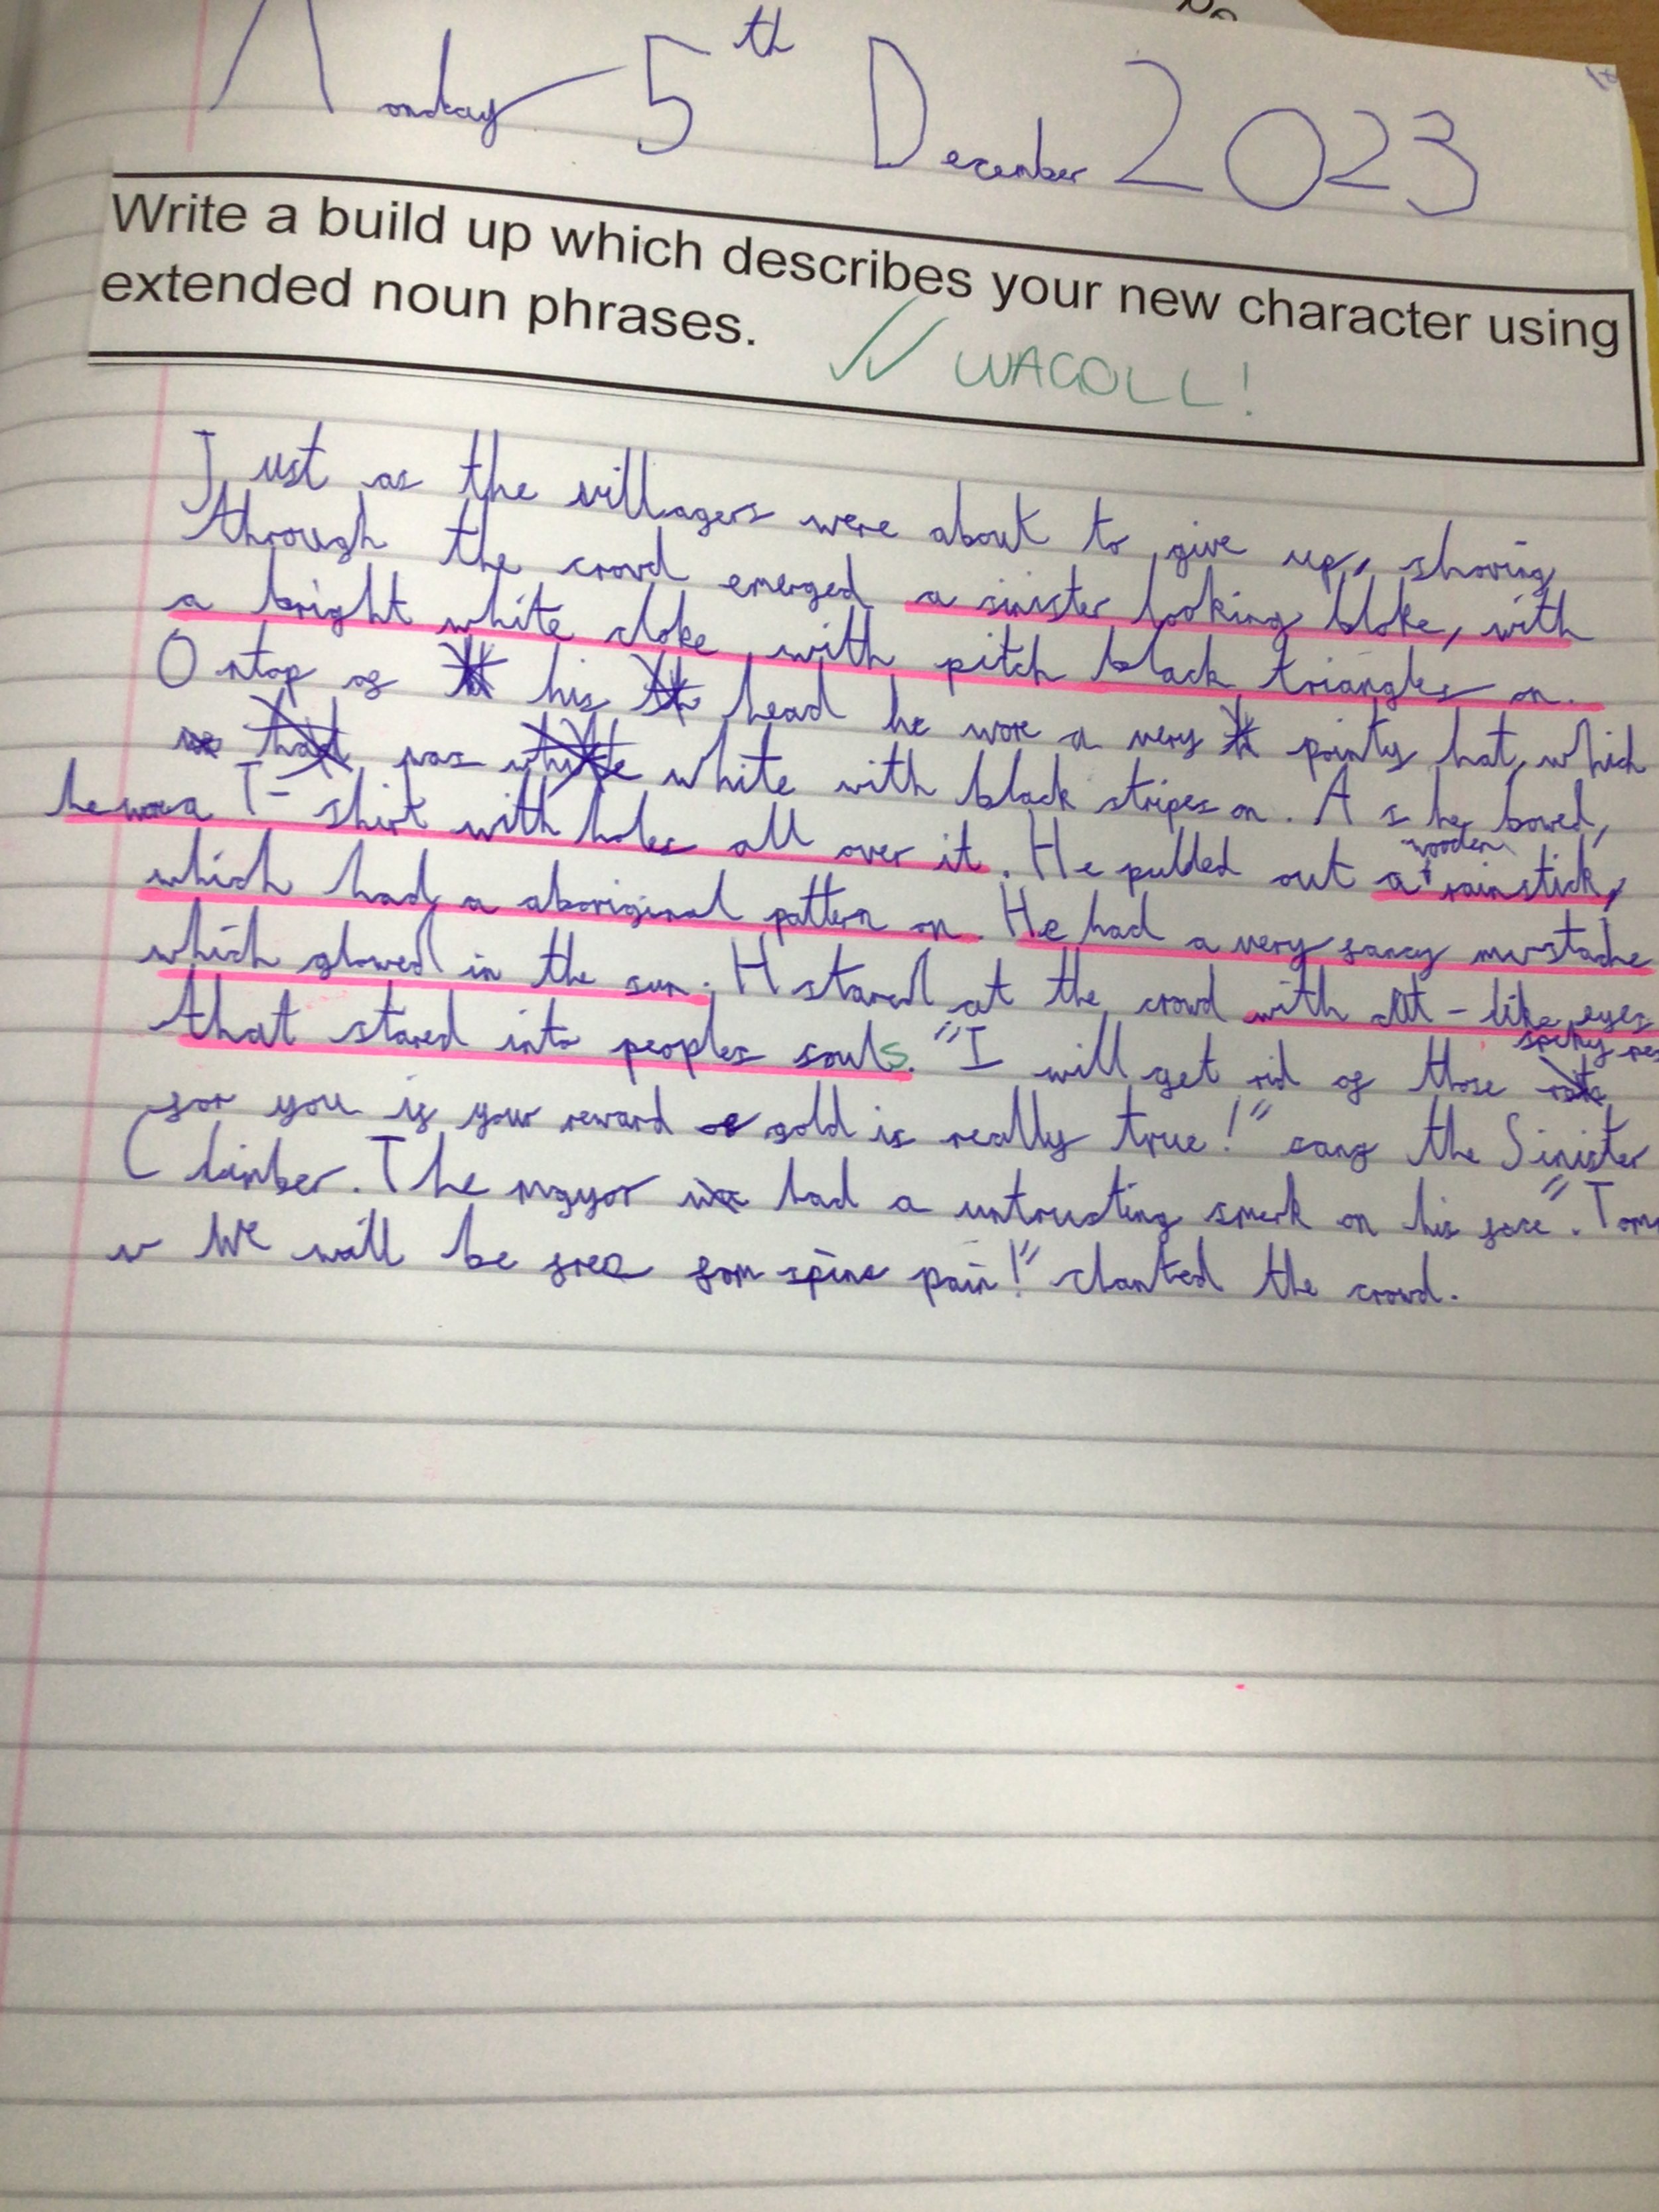 Monday 5th December 2023
Write a build up which describes your new character using
extended noun phrases.
WAGOLL!
Just as the villagers were about to give up, shoving
through the crowd emerged a sinister looking bloke, with
a bright white cloke with pitch black triangles on.
Ontop of his head he wore a very pointy hat, which
was white with black stripes on. As he bowed,
he wore a T-shirt with holes all over it. He pulled out a wooden rainstick,
which had a aboriginal pattern on. He had a very fancy mustache
which glowed in the sun. H stared at the crowd with like eyes
that stared into peoples souls. "I will get rid of those spiky
for you if your reward of gold is really true!" sang the Sinister
Climber. The mayor had a untrusting smerk on his face ".
We will be free from spine pain!" chanted the crowd.